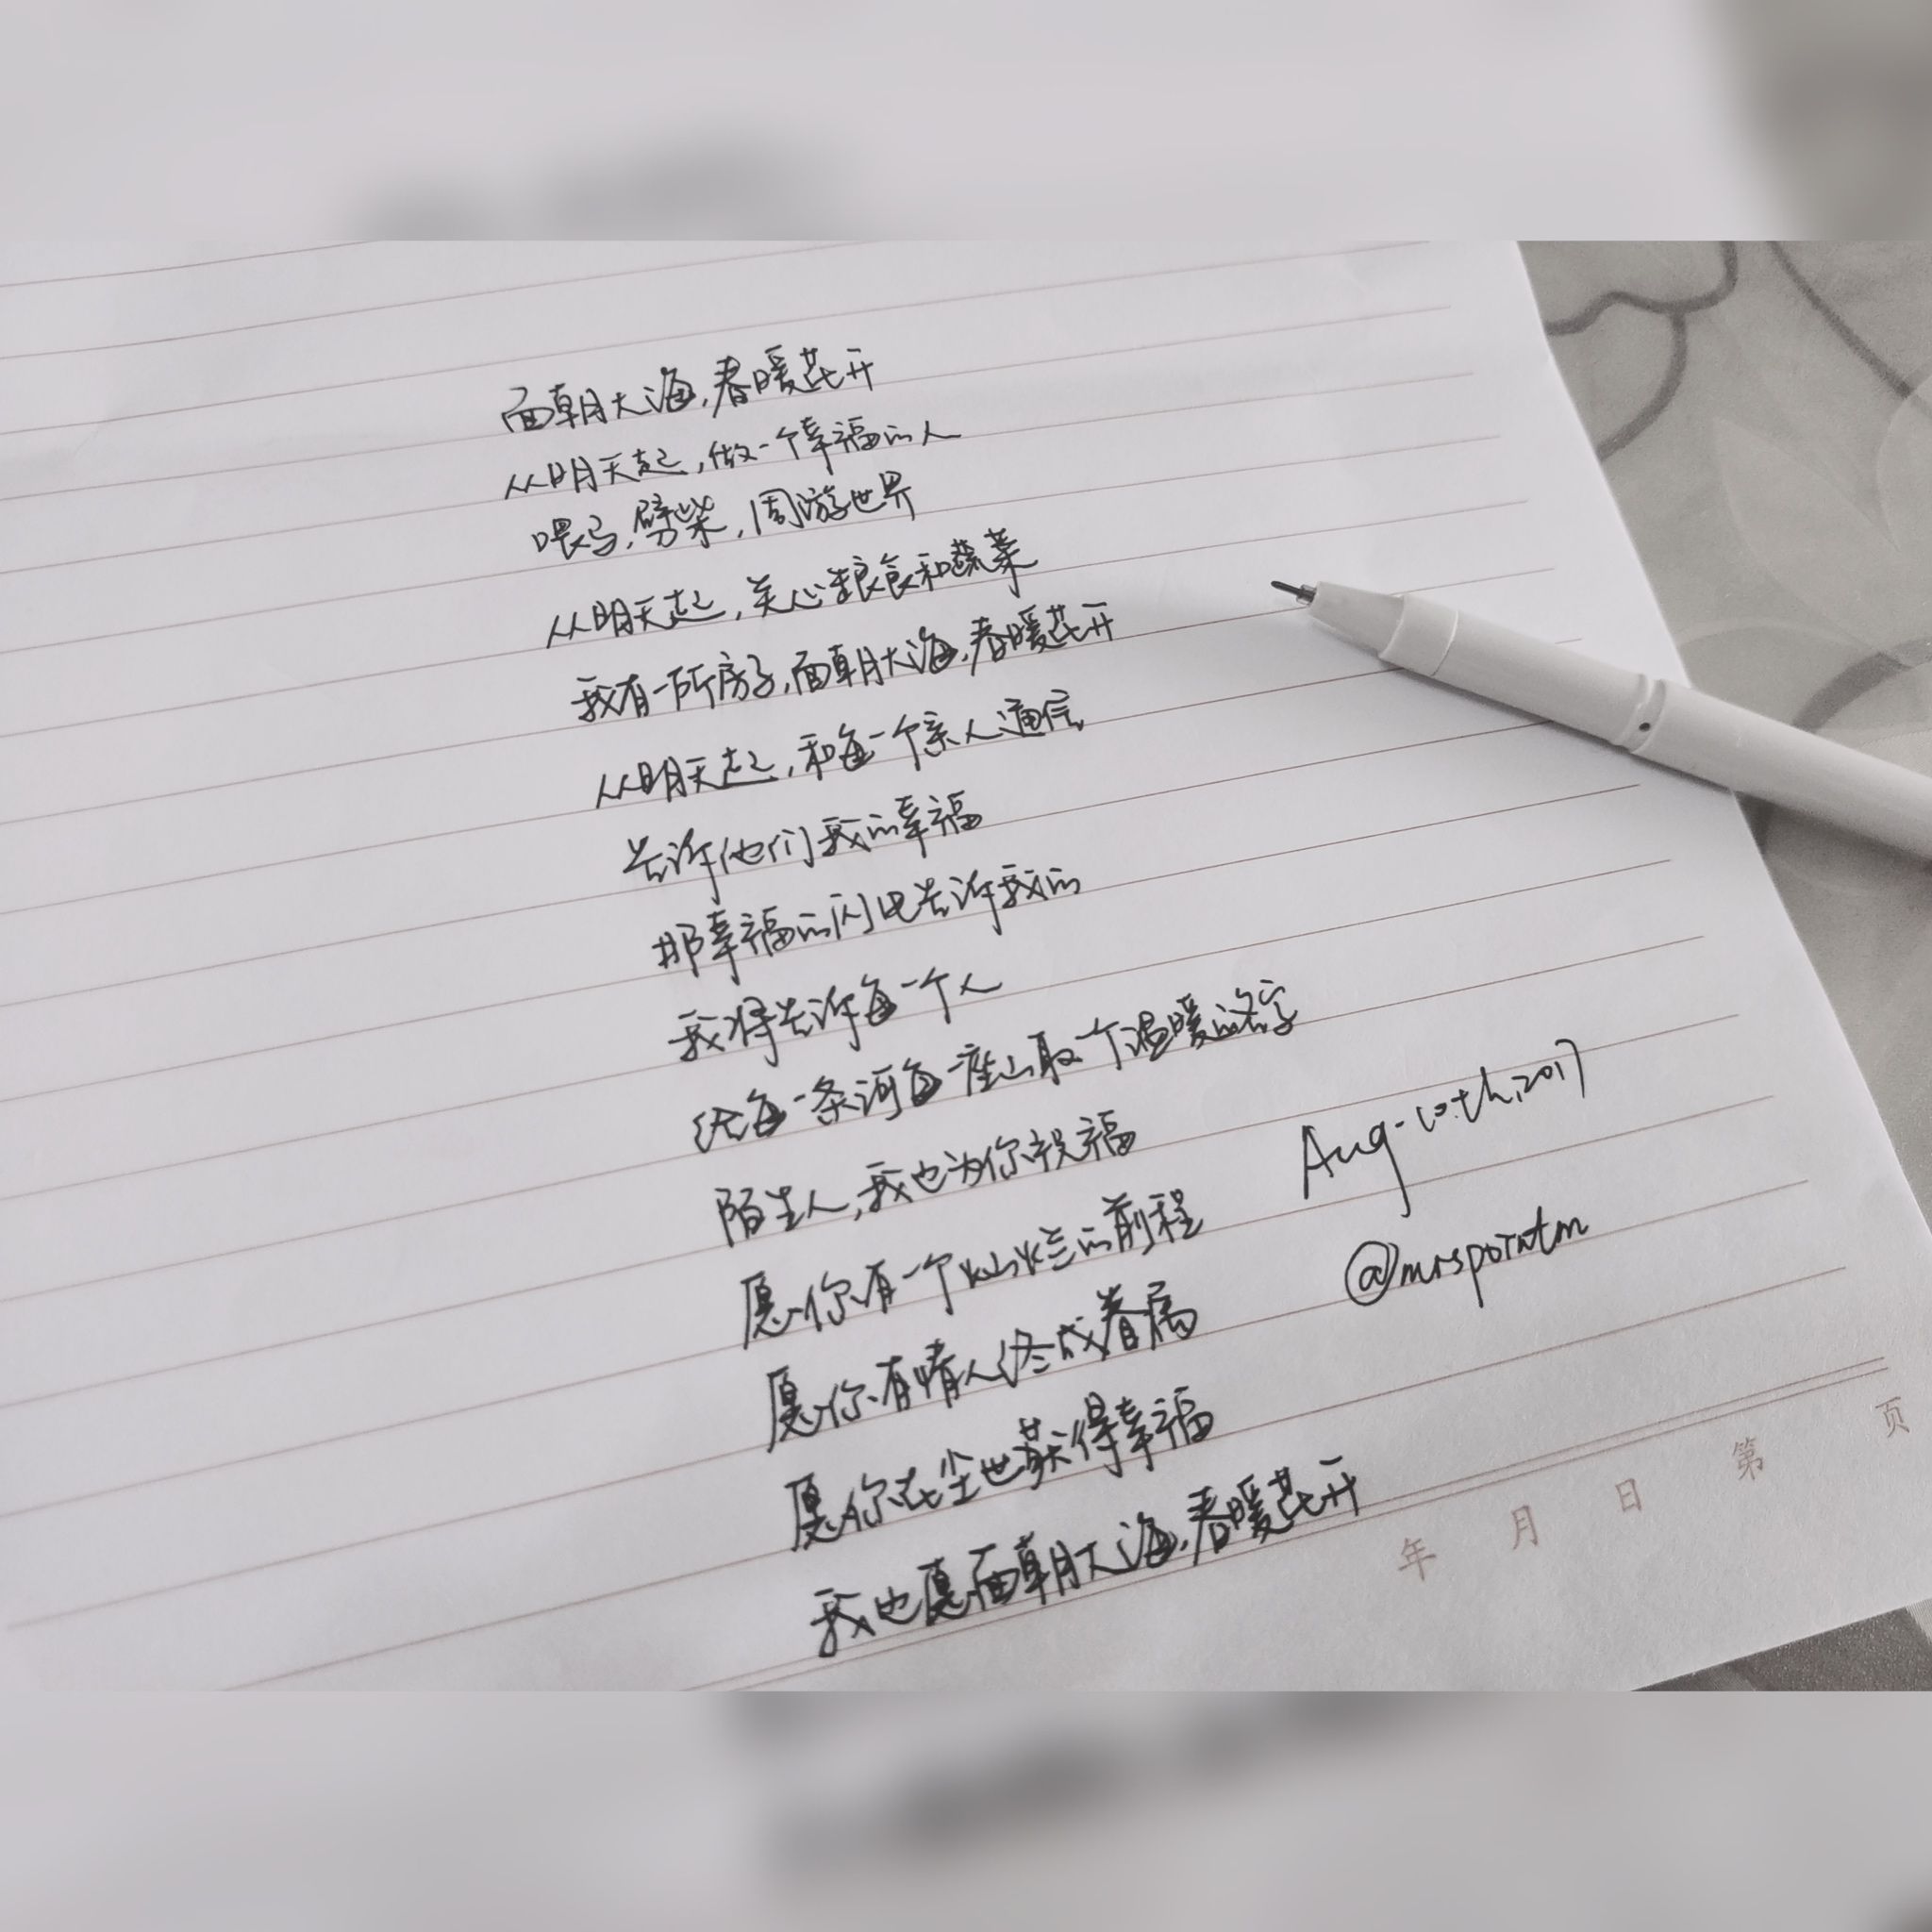 面朝大海,春暖花开
从明天起,做一个幸福的人
喂马,劈柴,周游世界
从明天起,关心粮食和蔬菜
我有一所房子,面朝大海,春暖花开
从明天起,和每一个亲人通信
告诉他们我的幸福
那幸福的闪电告诉我的
我将告诉每一个人
给每一条河每一座山取一个温暖的名字
陌生人,我也为你祝福
愿你有一个灿烂的前程
愿你有情人终成眷属
愿你在尘世获得幸福
我也愿面朝大海,春暖花开
Aug-10th,2017
年 月 日 第 页